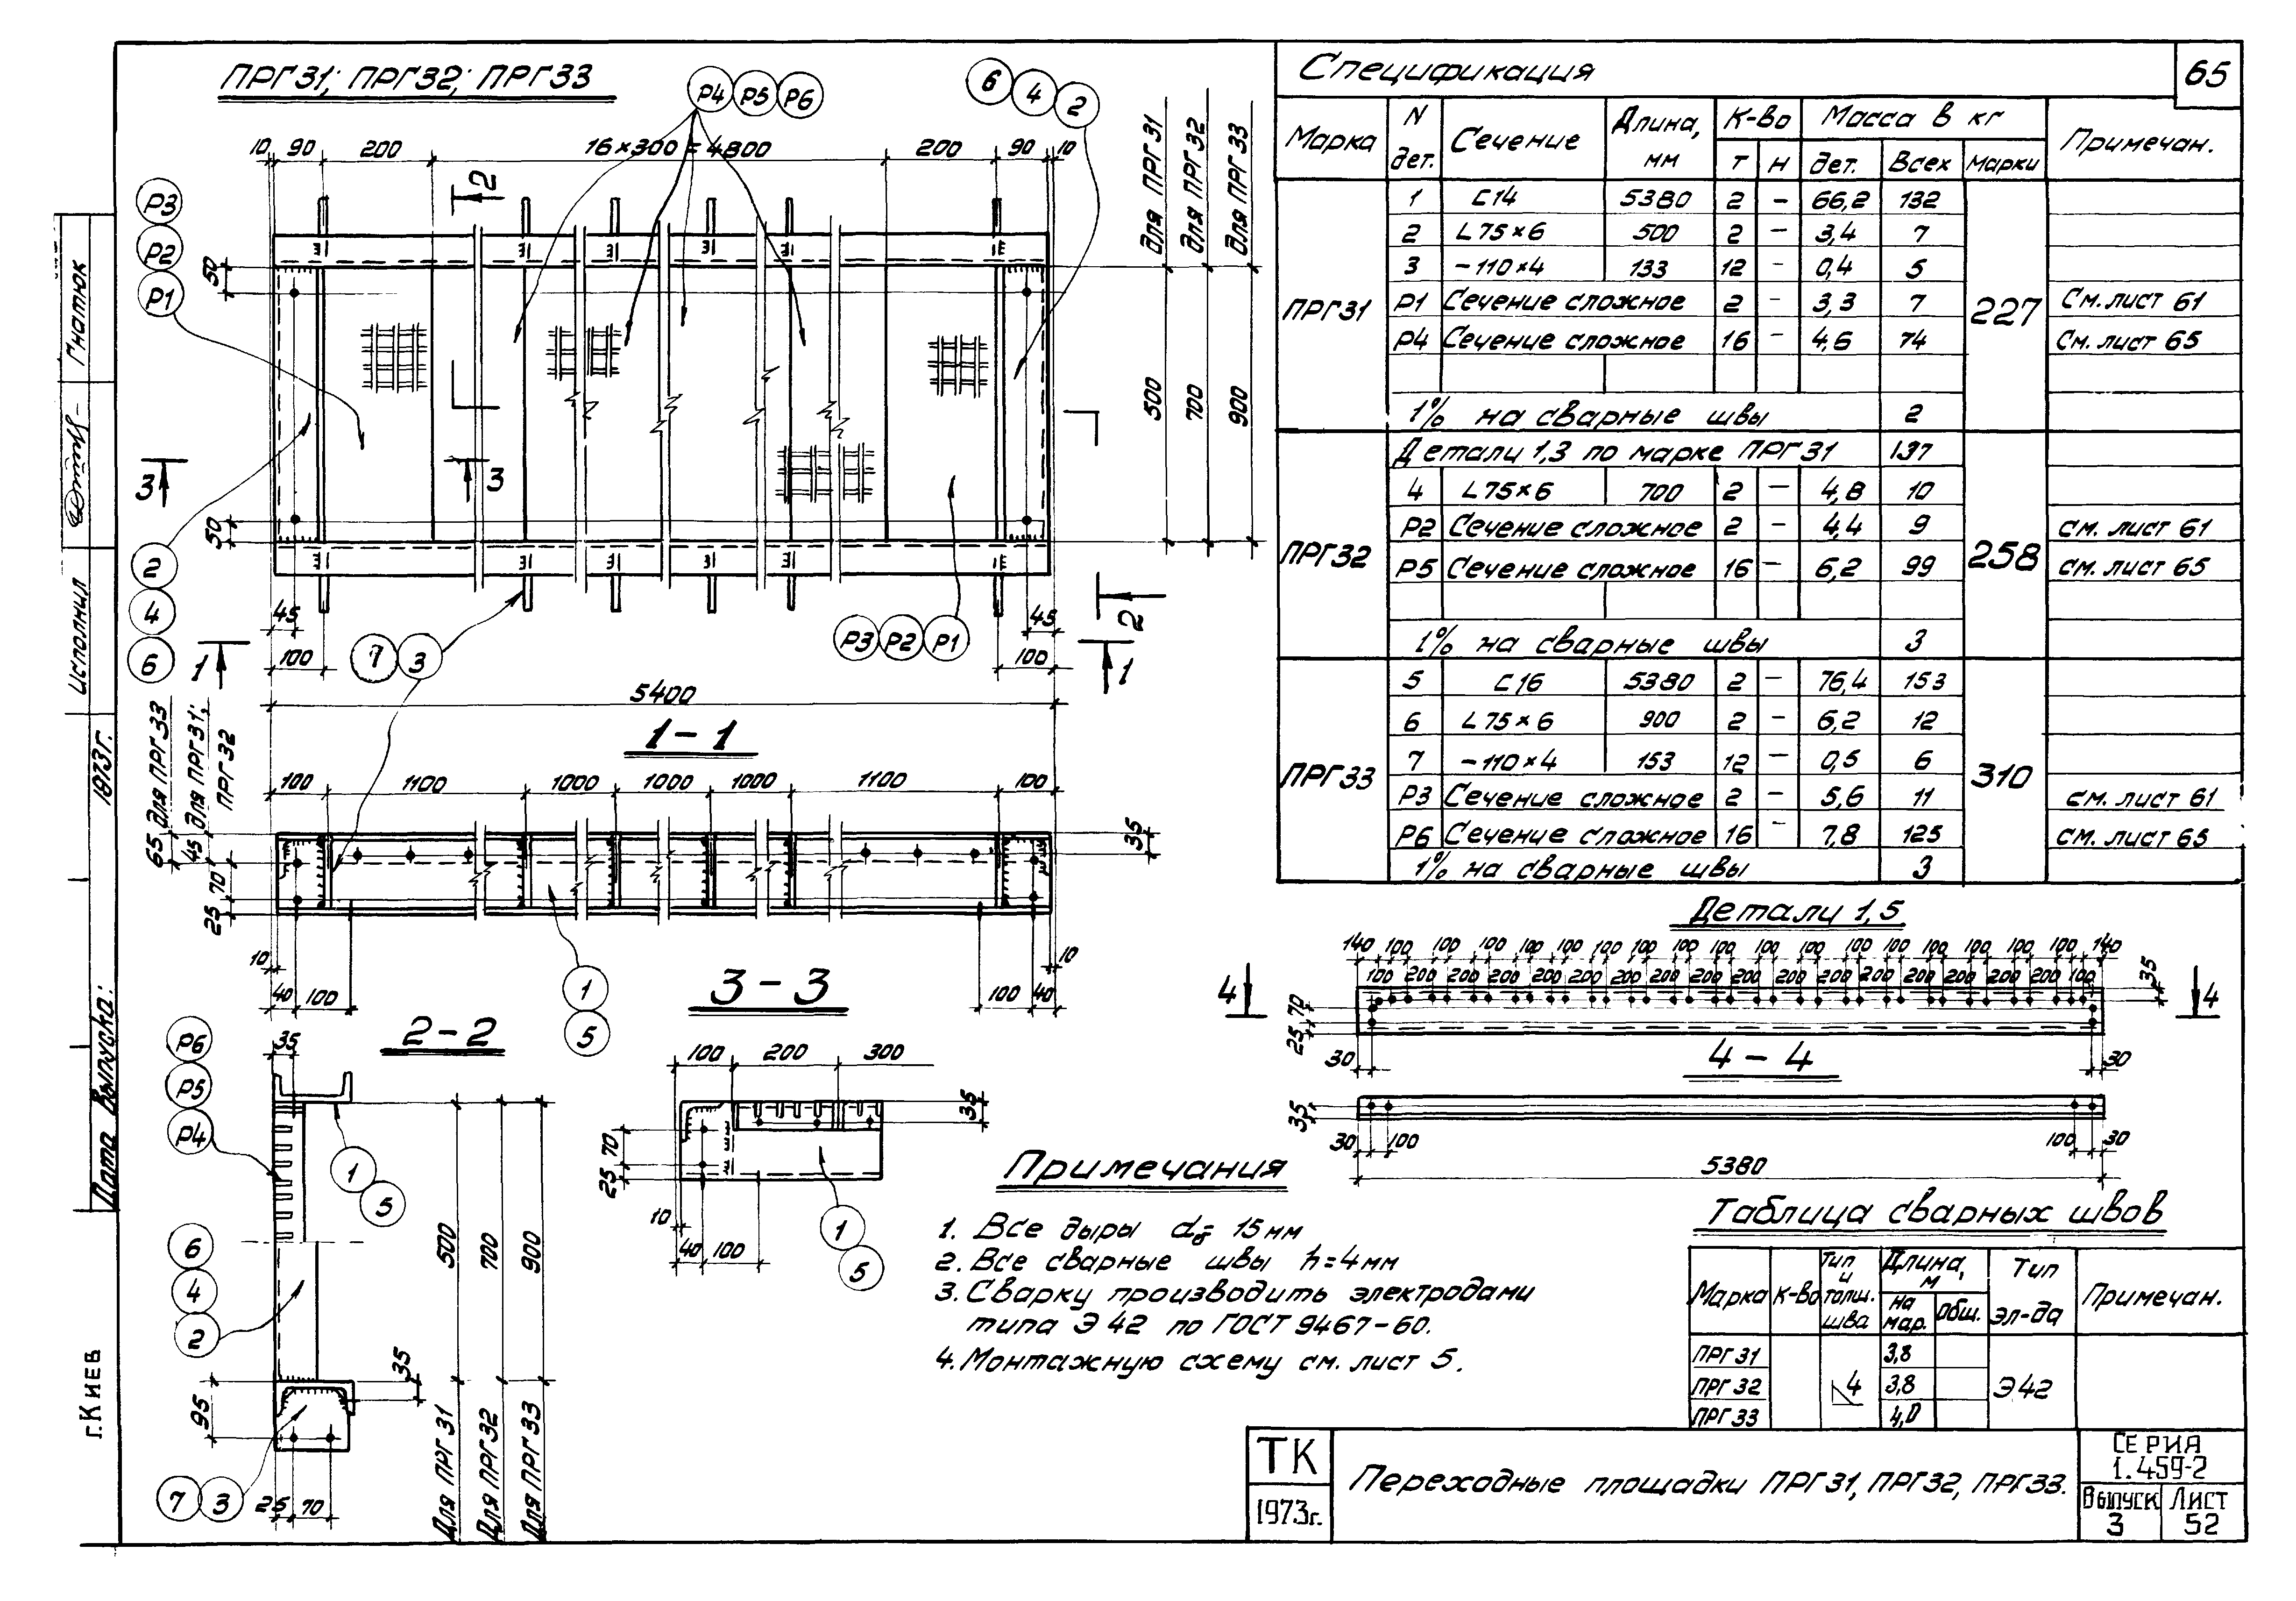 ПРГ31; ПРГ32; ПРГ33
Р4 Р5 Р6
6 4 2
10 90 200 16×300=4800 200 90 10
Для ПРГ31
Для ПРГ32
Для ПРГ33
Р3
Р2
Р1
2
50
500
700
900
3
3
50
2
4
6
45
100
1
7 3
Р3 Р2 Р1
45
100
2
1
5400
1-1
65 Для ПРГ33
45 Для ПРГ31;
ПРГ32
100 1100 1000 1000 1000 1100 100
35
70
25
10
40 100
1
5
100 40
10
2-2
35
Р6
Р5
Р4
1
5
6
4
2
35
95
7 3
25 70
500
700
900
Для ПРГ31
Для ПРГ32
Для ПРГ33
3-3
100 200 300
35
70
25
10
40 100
1
5
Спецификация
65
Марка N дет. Сечение Длина, мм К-во Масса в кг Примечан.
т н дет. Всех Марки
ПРГ31
1 С14 5380 2 - 66,2 132
2 L75×6 500 2 - 3,4 7
3 -110×4 133 12 - 0,4 5
Р1 Сечение сложное 2 - 3,3 7 227 См. лист 61
Р4 Сечение сложное 16 - 4,6 74 См. лист 65
1% на сварные швы 2
ПРГ32
Детали 1,3 по марке ПРГ31 137
4 L75×6 700 2 - 4,8 10
Р2 Сечение сложное 2 - 4,4 9 258 см. лист 61
Р5 Сечение сложное 16 - 6,2 99 см. лист 65
1% на сварные швы 3
ПРГ33
5 С16 5380 2 - 76,4 153
6 L75×6 900 2 - 6,2 12
7 -110×4 153 12 - 0,5 6 310
Р3 Сечение сложное 2 - 5,6 11 см. лист 61
Р6 Сечение сложное 16 - 7,8 125 см. лист 65
1% на сварные швы 3
Детали 1,5
140 100 100 100 100 100 100 100 100 100 100 100 100 100 100 100 100 100 140
100 200 200 200 200 200 200 200 200 200 200 200 200 200 200 200 100
35
4 4
70
25
30 30
4-4
35
30 100 100 30
5380
Примечания
1. Все дыры d₀= 15мм
2. Все сварные швы h=4мм
3. Сварку производить электродами
типа Э42 по ГОСТ 9467-60.
4. Монтажную схему см. лист 5.
Таблица сварных швов
Марка К-во Тип и толщ. шва Длина, м Тип эл-да Примечан.
на мар. общ.
ПРГ31 3,8
ПРГ32 4 3,8 Э42
ПРГ33 4,0
ТК
1973г.
Переходные площадки ПРГ31, ПРГ32, ПРГ33.
СЕРИЯ
1.459-2
Выпуск
3
Лист
52
Гнатюк
Исполнил
1973г.
Дата выпуска:
г.Киев